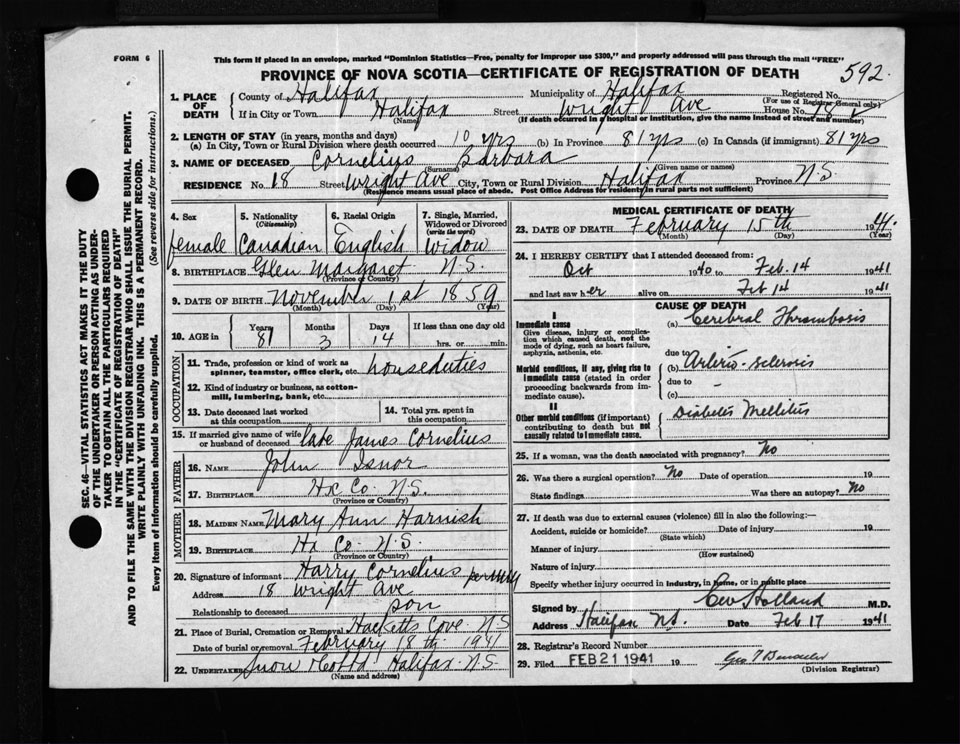 FORM 6
This form if placed in an envelope, marked "Dominion Statistics—Free, penalty for improper use $300," and properly addressed will pass through the mail "FREE"
PROVINCE OF NOVA SCOTIA—CERTIFICATE OF REGISTRATION OF DEATH
592.
SEC. 46—VITAL STATISTICS ACT MAKES IT THE DUTY
OF THE UNDERTAKER OR PERSON ACTING AS UNDER-
TAKER TO OBTAIN ALL THE PARTICULARS REQUIRED
IN THE "CERTIFICATE OF REGISTRATION OF DEATH"
AND TO FILE THE SAME WITH THE DIVISION REGISTRAR WHO SHALL ISSUE THE BURIAL PERMIT.
WRITE PLAINLY WITH UNFADING INK. THIS IS A PERMANENT RECORD.
Every item of Information should be carefully supplied. (See reverse side for instructions.)
1. PLACE OF DEATH
County of Halifax Municipality of Halifax Registered No.
(For use of Registrar General only)
If in City or Town Halifax Street Wright Ave House No. 18
(Name) (If death occurred in a hospital or institution, give the name instead of street and number)
2. LENGTH OF STAY (in years, months and days)
(a) In City, Town or Rural Division where death occurred 10 yrs (b) In Province 81 yrs (c) In Canada (if immigrant) 81 yrs
3. NAME OF DECEASED Cornelius Barbara
(Surname) (Given name or names)
RESIDENCE No. 18 Street Wright Ave City, Town or Rural Division Halifax Province N.S.
(Residence means usual place of abode. Post Office Address for residents in rural parts not sufficient)
4. Sex
female
5. Nationality
(Citizenship)
Canadian
6. Racial Origin
English
7. Single, Married, Widowed or Divorced
(write the word)
Widow
8. BIRTHPLACE Glen Margaret N.S.
(Province or Country)
9. DATE OF BIRTH November 1st 1859
(Month) (Day) (Year)
10. AGE in
Years 81
Months 3
Days 14
If less than one day old
hrs. or min.
OCCUPATION
11. Trade, profession or kind of work as
spinner, teamster, office clerk, etc. houseduties
12. Kind of industry or business, as cotton-
mill, lumbering, bank, etc.
13. Date deceased last worked
at this occupation
14. Total yrs. spent in
this occupation
15. If married give name of wife
or husband of deceased late James Cornelius
FATHER
16. NAME John Isnor
17. BIRTHPLACE Hx Co. N.S.
(Province or Country)
MOTHER
18. MAIDEN NAME Mary Ann Harnish
19. BIRTHPLACE Hx Co. N.S.
(Province or Country)
20. Signature of informant Harry Cornelius per
Address 18 Wright Ave
Relationship to deceased son
21. Place of Burial, Cremation or Removal Hacketts Cove N.S
Date of burial or removal February 18th 1941
22. UNDERTAKER Snow Halifax N.S.
(Name and address)
MEDICAL CERTIFICATE OF DEATH
23. DATE OF DEATH February 15th 1941
(Month) (Day) (Year)
24. I HEREBY CERTIFY that I attended deceased from:
Oct 1940 to Feb. 14 1941
and last saw her alive on Feb 14 1941
CAUSE OF DEATH
I
Immediate cause
Give disease, injury or complica-
tion which caused death, not the
mode of dying, such as heart failure,
asphyxia, asthenia, etc.
(a) Cerebral Thrombosis
due to
Morbid conditions, if any, giving rise to
immediate cause (stated in order
proceeding backwards from im-
mediate cause).
(b) Arterio-sclerosis
due to -
(c)
II
Other morbid conditions (if important)
contributing to death but not
causally related to immediate cause.
Diabetes Mellitus
25. If a woman, was the death associated with pregnancy? No
26. Was there a surgical operation? No Date of operation 19
State findings Was there an autopsy? No
27. If death was due to external causes (violence) fill in also the following:—
Accident, suicide or homicide? Date of injury 19
(State which)
Manner of injury
(How sustained)
Nature of injury
Specify whether injury occurred in industry, in home, or in public place
Signed by Holland M.D.
Address Halifax N.S. Date Feb 17 1941
28. Registrar's Record Number
29. Filed FEB 21 1941 19 Geo
(Division Registrar)